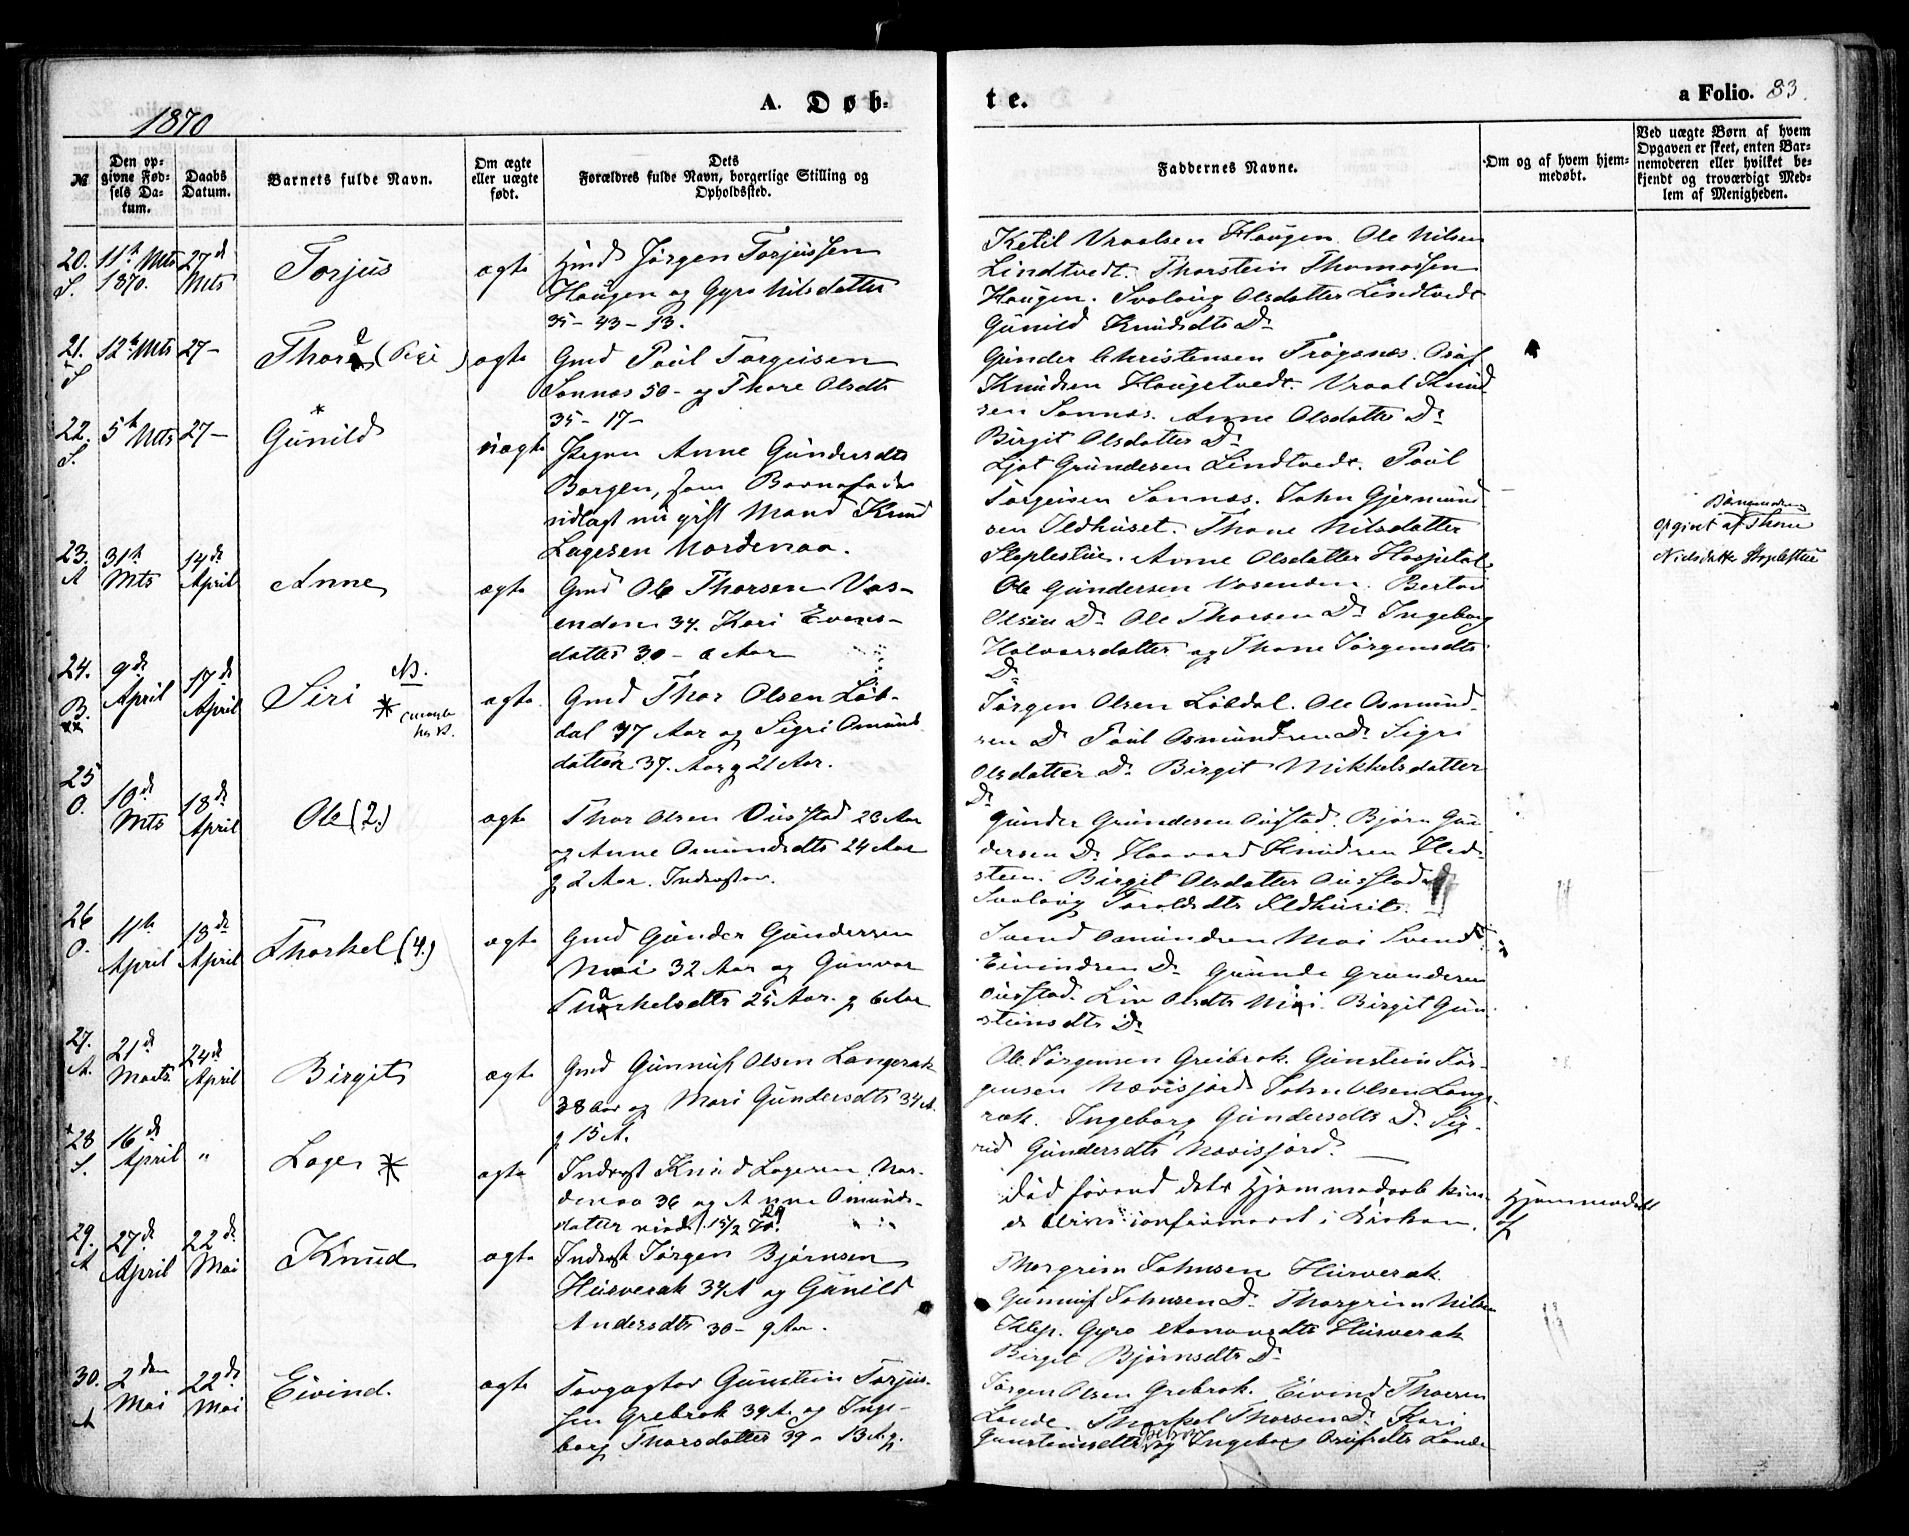 1870
A. Døb-
te.
a Folio. 83.
№
Den op-
givne Fød-
sels Da-
tum.
Daabs
Datum.
Barnets fulde Navn.
Om ægte
eller uægte
født.
Dets
Forældres fulde Navn, borgerlige Stilling og
Opholdssted.
Faddernes Navne.
Om og af hvem hjem-
medøbt.
Ved uægte Børn af hvem
Opgaven er skeet, enten Bar-
nemoderen eller hvilket be-
kjendt og troværdigt Med-
lem af Menigheden.
20. 11te Mts 27de
S. 1870. Mts
Torjus
ægte
Jørgen Torjussen
Haugen og Gyro Nilsdatter
35 - 43 - 13.
Ketil Vraalsen Haugen. Ole Nilsen
Lindtvedt. Thorstein Thomassen
Haugen. Svalaug Olsdatter Lindtvedt
Gunild Knudsdtr Dr
21. 12te Mts 27 -
S
Thor
ægte
Gmd Poul Torgeisen
Sonnæs 50 - og Thore Olsdtr
35 - 17 -
Gunder Christensen Trøgsnæs. Osuf
Knudsen Haugetvedt. Vraal Knud
sen Sonnæs. Anne Olsdatter Dr
Birgit Olsdatter Dr
22. 5te Mts 27 -
S.
Gunild *
uægte
Pigen Anne Gundersdtr
Borgen, som Barnefader
udlagt nu gift Mand Knud
Lagesen Nordenaa.
Ljot Gundersen Lindtvedt. Poul
Torgeisen Sonnæs. John Gjermund
sen Ildhuset. Thone Nilsdatter
Stoplestue. Anne Olsdatter Hospital
opgivet af Thone
Nielsdatter Stoplestue
23. 31te 14de
A Mts April
Anne
ægte
Gmd Ole Thorsen Vas-
enden 34. Kari Evens-
datter 30 - a Aar
Ole Gundersen Vasenden. Bertou
Olsen Dr Ole Thorsen Dr Ingeborg
Halvorsdatter og Thone Jørgensdtr
Dr
24. 9de 17de
B. April April
**
Siri * NB.
ægte
Gmd Thor Olsen Løb-
dal 37 Aar og Sigri Omunds
datter 37. Aar g 21 Aar.
Jørgen Olsen Løbdal. Ole Osmund-
sen Dr Poul Osmundsen Dr Sigri
Olsdatter Dr Birgit Mikkelsdatter
Dr
25 10de 18de
O. Mts April
Ole (2.)
ægte
Thor Olsen Ousstad 23 Aar
og Anne Omundsdtr 24 Aar
g 2 Aar. Inderstar.
Gunder Gundersen Ousstad. Bjørn Gun
dersen Dr Haavard Knudsen Hed-
stein. Birgit Olsdatter Ousstad
Svalaug Taroldsdtr Ildhuset.
26 11te 18de
O. April April
Thorkel (4.)
ægte
Gmd Gunder Gundersen
Moi 32 Aar og Gunvor
Thorkelsdtr 25 Aar. g 6 Aar
Svend Omundsen Moi Svend
Eivindsen Dr Gunder Gundersen
Ousstad. Liv Olsdtr Moi. Birgit Gun
steinsdtr Dr
27. 21de 24de
A. Marts. April
Birgit
ægte
Gmd Gunnuf Olsen Langerak
38 Aar og Mari Gundersdtr 34 A.
g 15 A.
Ole Jørgensen Greibrok. Gunstein Jør-
gensen NæVisfjord. John Olsen Lange
rak. Ingeborg Gundersdtr Dr Sig-
rid Gundersdtr Navisfjord.
28 16de "
S. April
Lage *
ægte
Inderst Knud Lagesen Nor-
denaa 36 og Anne Omunds-
datter
Død forend dets Hjemmedaab kun-
de blive confirmeret i Kirken.
Hjemmedøbt
af
29. 27de 22de
A April Mai
Knud
ægte
Inderst Jørgen Bjørnsen
Husverak 34 A og Gunild
Andersdtr 30 - 9 Aar.
Thorgrim Johnsen Husverak.
Gunnuf Johnsen Dr Thorgrim Nilsen
Klep. Gyro Aanonsdtr Husverak
Birgit Bjørnsdtr Dr
30. 2den 22de
A Mai Mai
Eivind.
ægte
Gunstein Torjus-
sen Grebrok 39 A. og Inge-
borg Thorsdatter 39 - 13 A g.
Jørgen Olsen Grebrok. Eivind Thorsen
Lande. Thorkel Thorsen Dr Kari
Gunsteinsdtr og Ingeborg Osufsdtr Lande